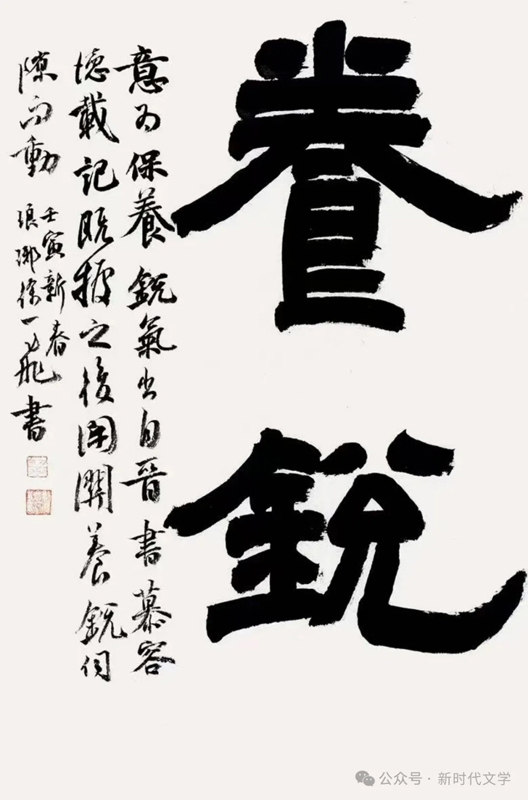 養銳
意为保養銳氣出自晉書慕容
德載記既據之後閉關養銳伺
隙而動
壬寅新春
琅琊徐一飛書
公众号 · 新时代文学